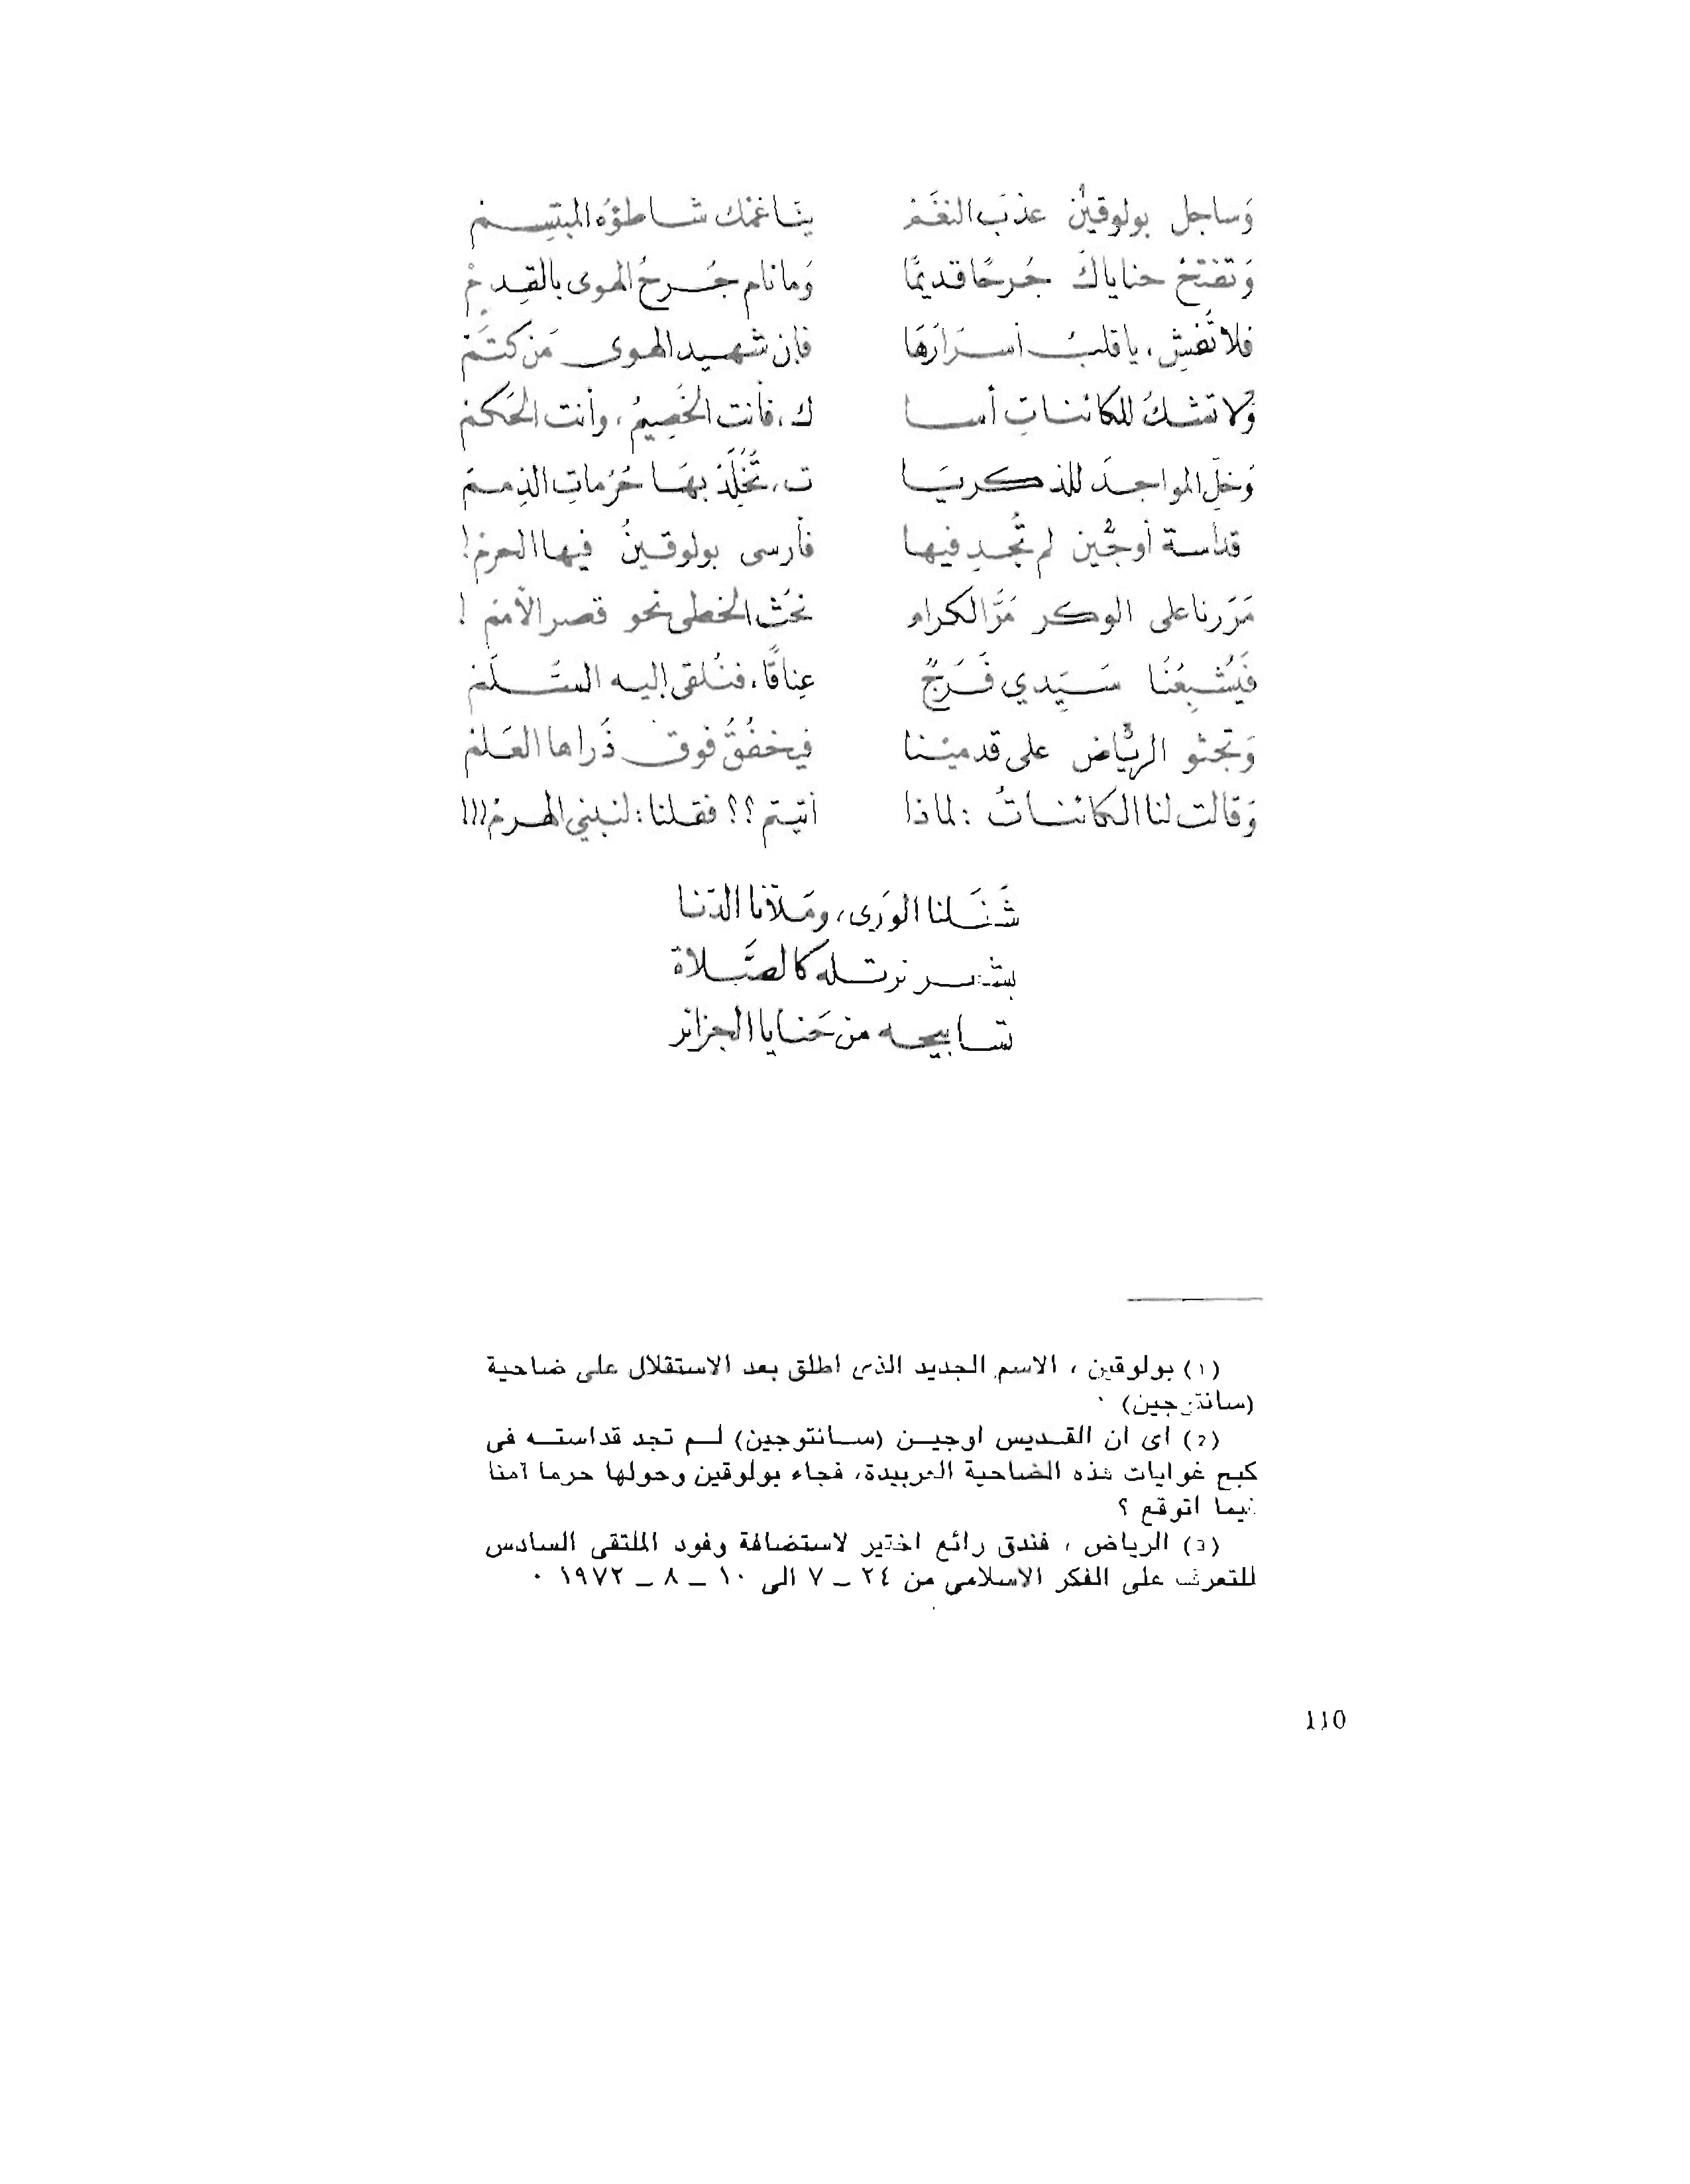 وَساجل بولوقينْ¹ عذبَ النغَمْ يناغمْك شاطؤهُ المبتسِمْ
وَتفتحْ حناياكَ جُرحًا قديمًا وَما نام جُرحُ الهوى بالقِدمْ
فلا تُفشِ، يا قلبُ أسرَارَهَا فإن شهيد الهوى مَن كتَمْ
وَلا تشكُ للكائناتِ أسا ك، فأنت الخَصِيمُ، وأنت الحَكمْ
وَخلِّ المواجدَ للذكريَا ت، تُخَلِّدْ بهَا حُرُماتِ الذِممْ
قداسة أوجين² لم تُجدِ فيها فأرسى بولوقينُ فيها الحرمْ!
مَرَرنا على الوكر مَرَّ الكرام نحُثّ الخطى نحو قصر الأممْ!
فَيُشبِعُنَا سَيِدي فَرَجٌ عِناقًا، فنُلقى إليه السَّلَمْ
وَتجثو الرياض³ على قدميْنا فيخفُقُ فوق ذُراها العَلمْ
وَقالت لنا الكائناتُ: لماذا أتيتم؟؟ فقلنا: لنبني الهرمْ!!!
شَغَلنا الوَرى، ومَلأنا الدّنا
بشعر نرتله كالصَّلاة
تسابيحه من حَنايا الجزائر
(١) بولوقين ، الاسم الجديد الذى اطلق بعد الاستقلال على ضاحية
(سانتوجين) ٠
(2) اى ان القديس اوجين (سانتوجين) لم تجد قداسته فى
كبح غوايات هذه الضاحية العربيدة، فجاء بولوقين وحولها حرما آمنا
فيما اتوقع ؟
(3) الرياض ، فندق رائع اختير لاستضافة وفود الملتقى السادس
للتعرف على الفكر الاسلامى من ٢٤ ــ ٧ الى ١٠ ــ ٨ ــ ١٩٧٢ ٠
110